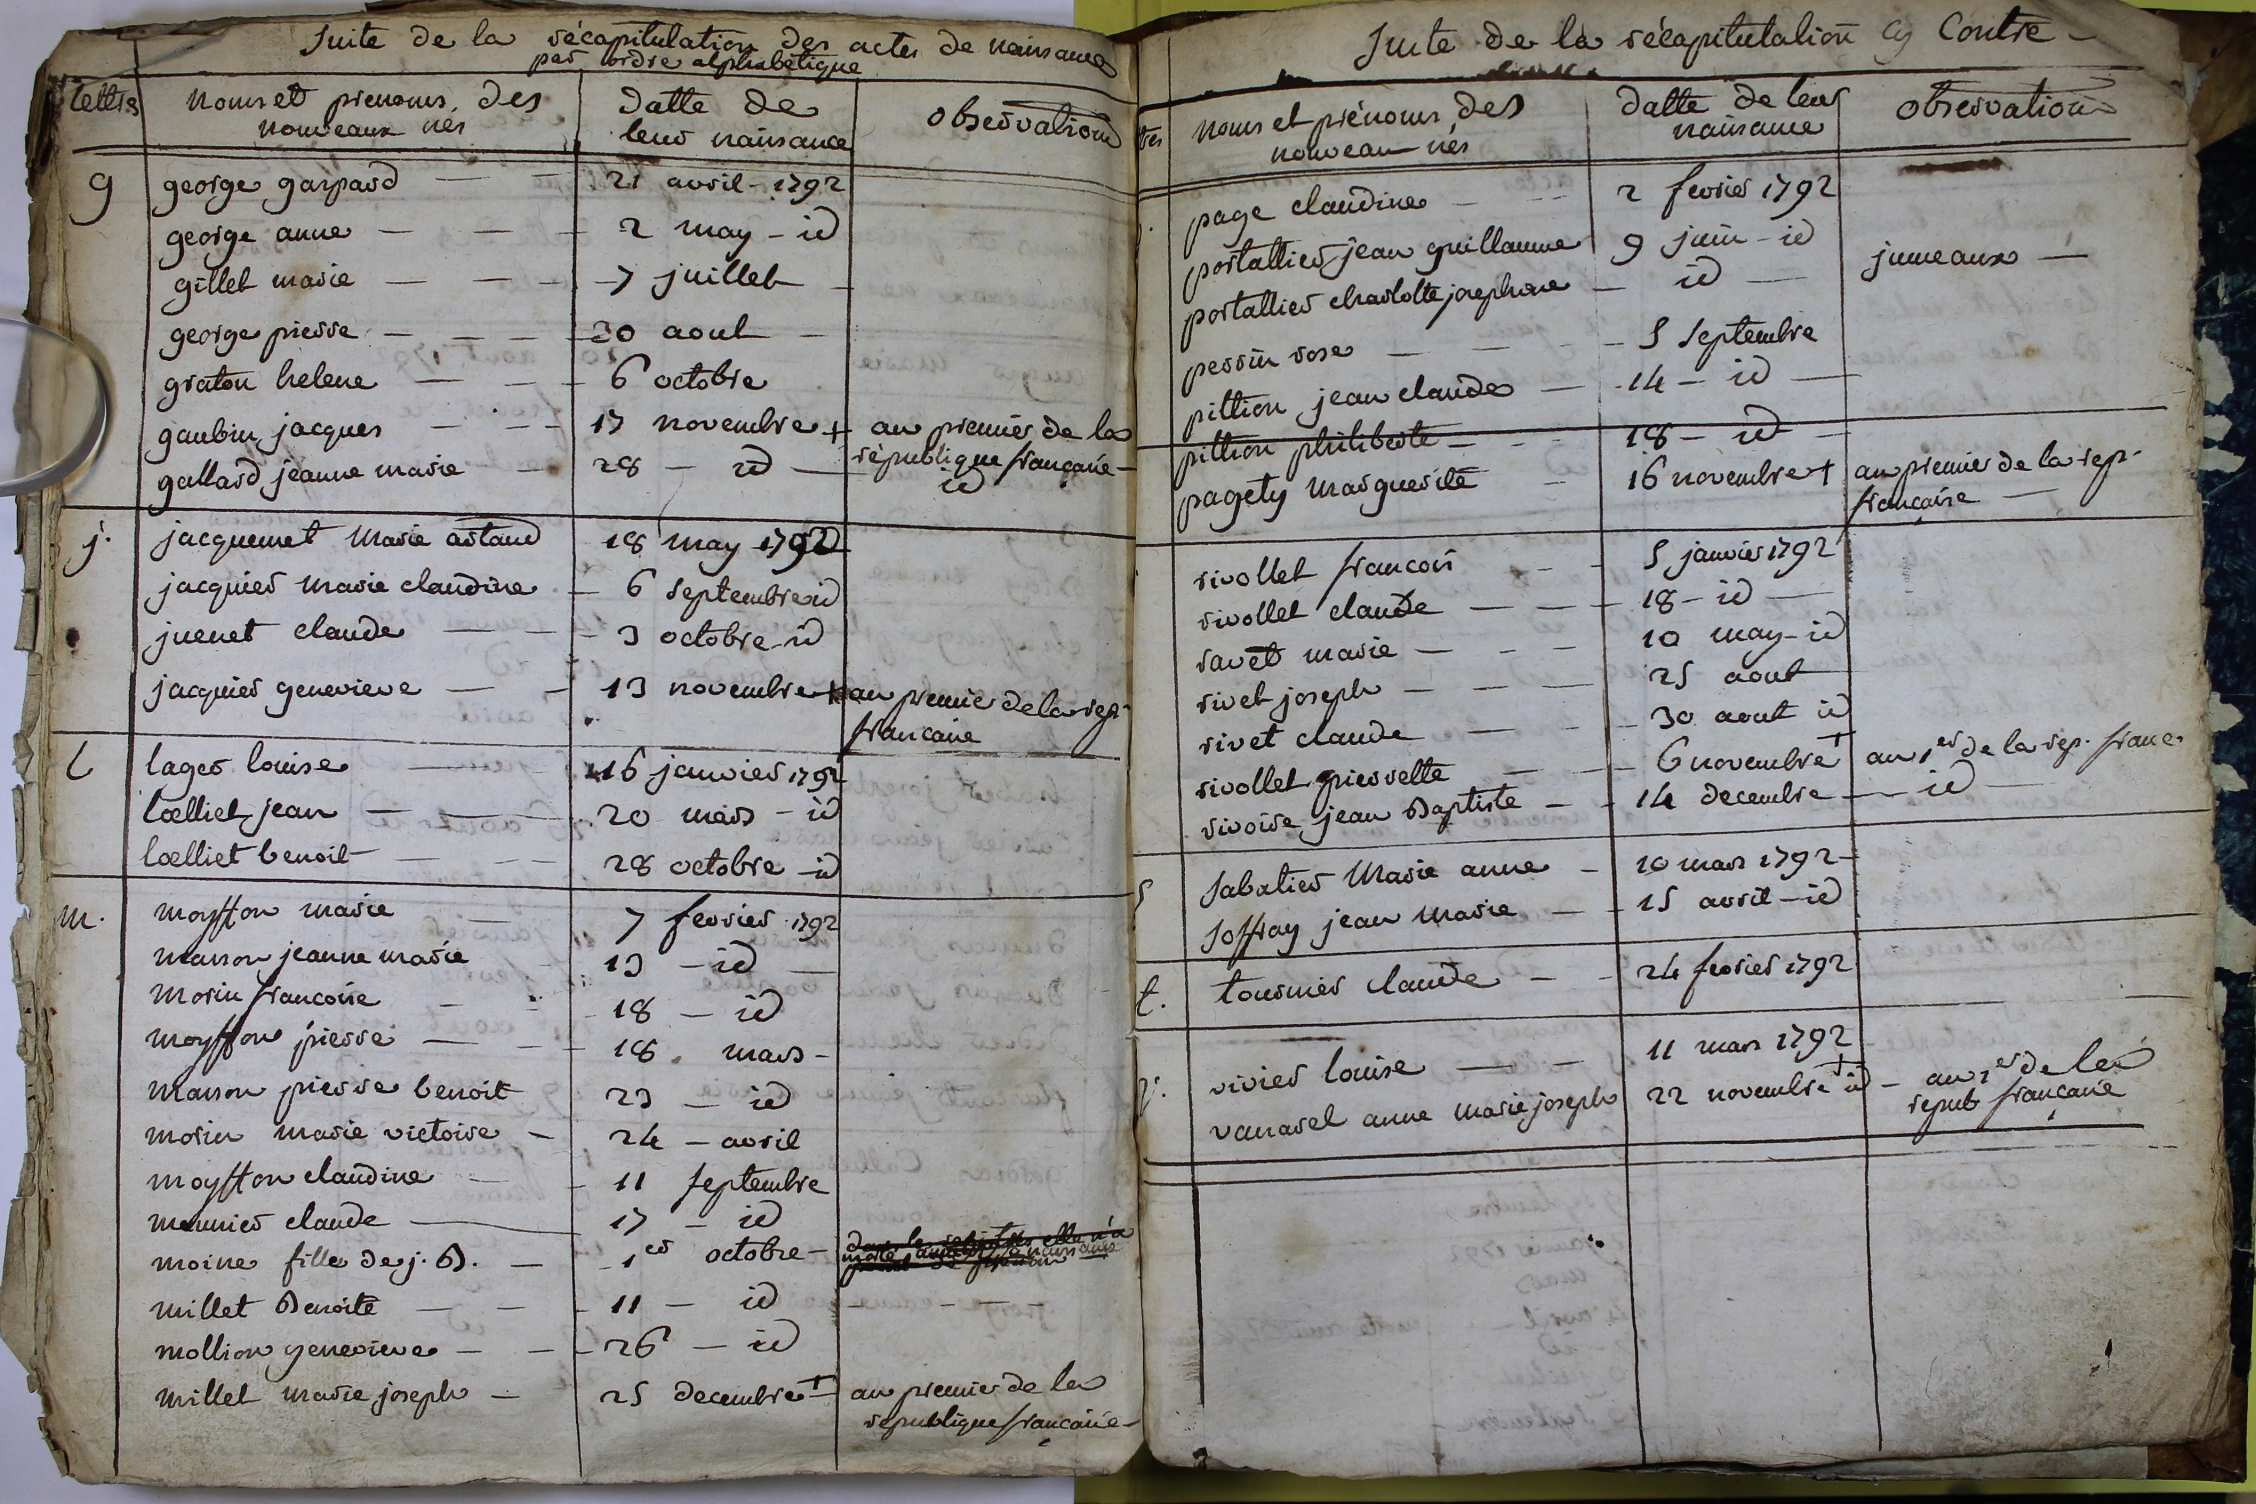 Suite de la récapitulation des actes de naissance
par ordre alphabétique
lettres
noms et prenoms des
nouveaux nés
datte de
leur naissance
observations
g george gaspard 21 avril - 1792
george anne 2 may - id
gillet marie 7 juillet
george pierre 30 aout
graton helene 6 octobre
gaubin jacques 17 novembre + an premier de la
république francaise
gallard jeanne marie 28 - id id
j. jacquemet Marie astaud 18 may 1792
jacquier marie claudine 6 septembre id
juenet claude 3 octobre id
jacquier genevieve 13 novembre + an premier de la rep.
francaise
l lager louise 16 janvier 1792
lœlliet jean 20 mars - id
lœlliet benoit 28 octobre - id
m. moysson marie 7 fevrier 1792
manson jeanne marie 13 - id
morin francoise 18 - id
moysson pierre 18 mars
manson pierre benoit 23 - id
morin marie victoire 24 - avril
moysson claudine 11 septembre
meunier claude 17 - id
moine fille de j. B. 1er octobre
millet Benoite 11 - id
mollion genevieve 26 - id
millet marie joseph 25 decembre + an premier de la
republique francaise
Suite de la récapitulation cy Contre
noms et prénoms des
nouveau nés
datte de leur
naissance
observations
page claudine 2 fevrier 1792
portallier jean guillaume 9 juin - id
jumeaux
portallier charlotte josephine id
perrin rose 5 septembre
pittion jean claude 14 - id
pittion philiberte 18 - id
pagety marguerite 16 novembre + an premier de la rep.
francaise
rivollet francois 5 janvier 1792
rivollet claude 18 - id
ravet marie 10 may - id
rivet joseph 25 aout
rivet claude 30 aout id
rivollet pierrette 6 novembre + an 1er de la rep. franc.
rivoire jean Baptiste 14 decembre id
s sabatier Marie anne 10 mars 1792
soffray jean marie 15 avril - id
t. tournier claude 24 fevrier 1792
v. vivier louise 11 mars 1792
vanarel anne marie joseph 22 novembre + id - an 1er de la
repub francaise